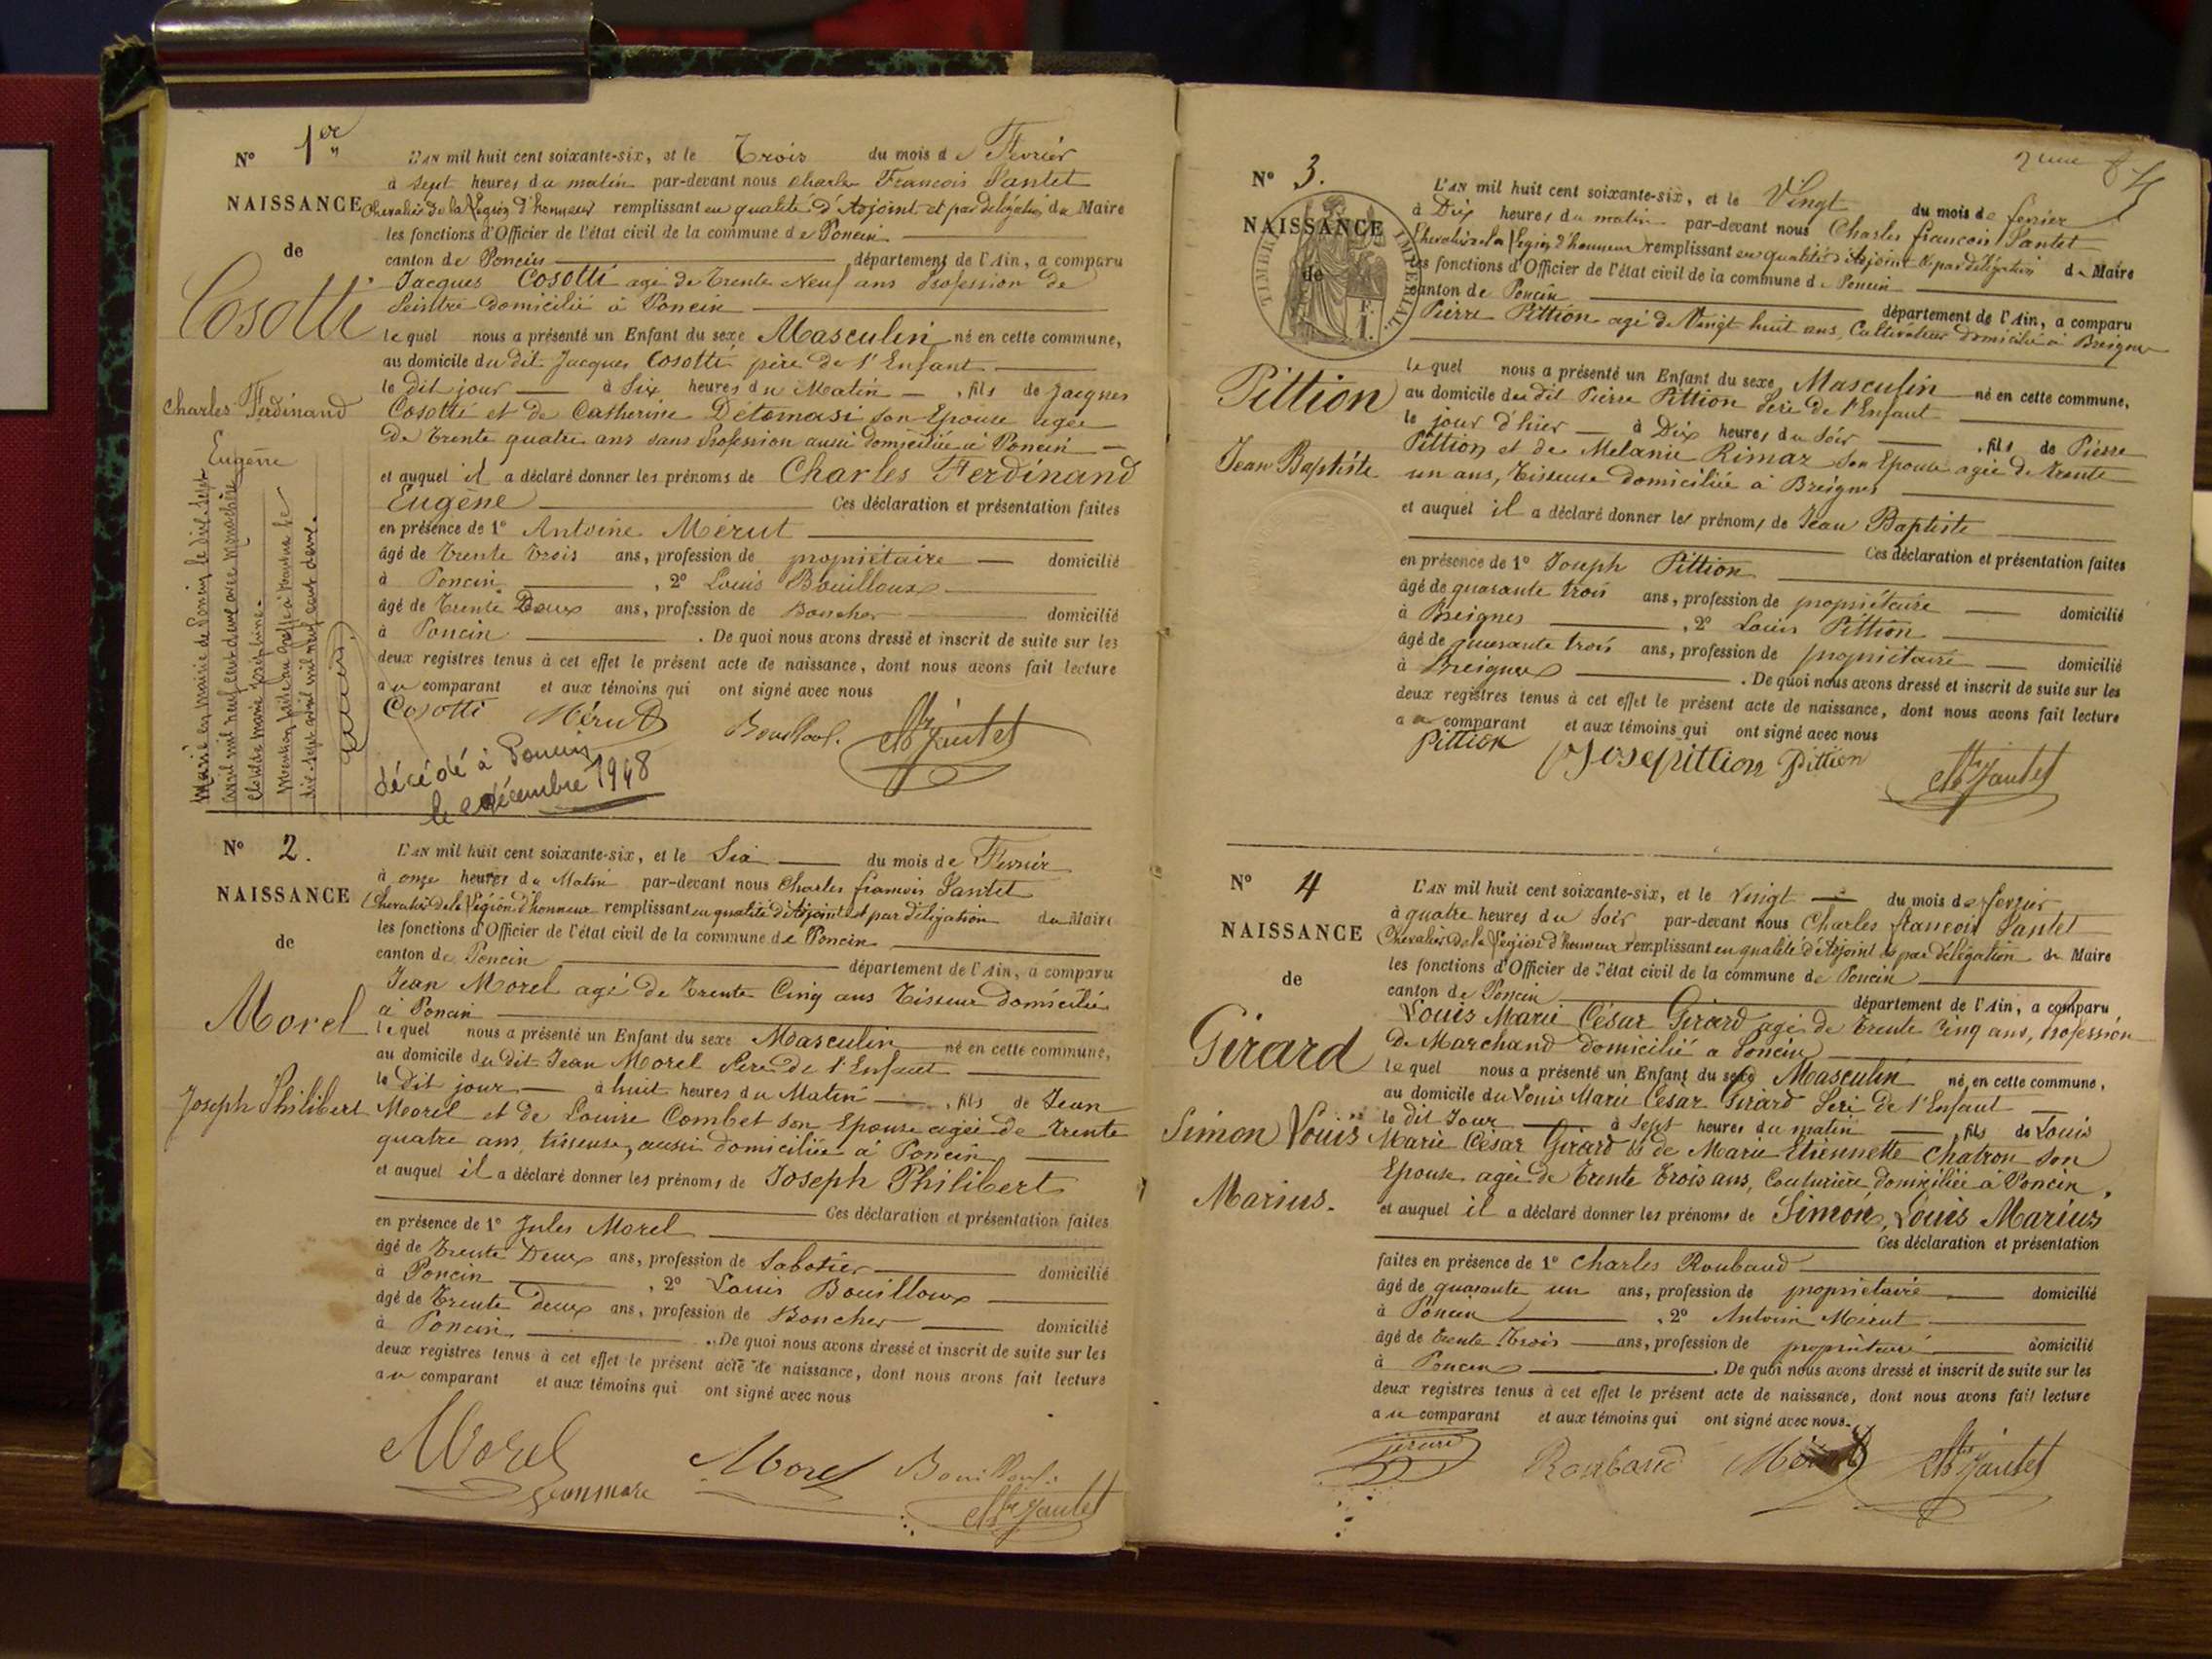 N° 1er
L'AN mil huit cent soixante-six, et le Trois du mois de Fevrier
à sept heures du matin par-devant nous Charles Francois Jantet
NAISSANCE Chevalier de la Légion d'honneur remplissant en qualité d'Adjoint et par délégation du Maire
les fonctions d'Officier de l'état civil de la commune de Poncin
de
canton de Poncin département de l'Ain, a comparu
Jacques Cosotti agé de Trente Neuf ans profession de
Cosotti
Peintre domicilié à Poncin
lequel nous a présenté un Enfant du sexe Masculin né en cette commune,
au domicile du dit Jacques Cosotti père de l'Enfant
le dit jour à Six heures du Matin , fils de Jacques
Charles Ferdinand
Eugène
Cosotti et de Catherine Détomasi son Epouse agée
de trente quatre ans sans Profession aussi domiciliée à Poncin
et auquel il a déclaré donner les prénoms de Charles Ferdinand
Eugène Ces déclaration et présentation faites
en présence de 1° Antoine Mérut
âgé de Trente Trois ans, profession de propriétaire domicilié
à Poncin , 2° Louis Bouilloux
âgé de Trente Deux ans, profession de Boucher domicilié
à Poncin . De quoi nous avons dressé et inscrit de suite sur les
deux registres tenus à cet effet le présent acte de naissance, dont nous avons fait lecture
au comparant et aux témoins qui ont signé avec nous
Cosotti Mérut Bouilloux Ch Jantet
Marié en mairie de Poncin le dix-sept
avril mil neuf cent deux avec
Clotilde Marie Joséphine.
Mention faite au Greffe à Nantua le
dix-sept avril mil neuf cent deux.
décédé à Poncin
le décembre 1948
N° 2.
L'AN mil huit cent soixante-six, et le Six du mois de Fevrier
à onze heures du Matin par-devant nous Charles francois Jantet
NAISSANCE Chevalier de la Légion d'honneur remplissant en qualité d'Adjoint et par délégation du Maire
les fonctions d'Officier de l'état civil de la commune de Poncin
de
canton de Poncin département de l'Ain, a comparu
Jean Morel agé de Trente Cinq ans Tisseur domicilié
à Poncin
Morel
lequel nous a présenté un Enfant du sexe Masculin né en cette commune,
au domicile du dit Jean Morel Père de l'Enfant
le dit jour à huit heures du Matin , fils de Jean
Joseph Philibert
Morel et de Louise Combet son Epouse agée de trente
quatre ans, tisseuse, aussi domiciliée à Poncin
et auquel il a déclaré donner les prénoms de Joseph Philibert
Ces déclaration et présentation faites
en présence de 1° Jules Morel
âgé de Trente Deux ans, profession de Sabotier domicilié
à Poncin , 2° Louis Bouilloux
âgé de Trente deux ans, profession de Boucher domicilié
à Poncin . De quoi nous avons dressé et inscrit de suite sur les
deux registres tenus à cet effet le présent acte de naissance, dont nous avons fait lecture
au comparant et aux témoins qui ont signé avec nous
Morel Morel Bouilloux
Ch Jantet
N° 3.
L'AN mil huit cent soixante-six, et le Vingt du mois de fevrier
à Dix heures du matin par-devant nous Charles francois Jantet
NAISSANCE
TIMBRE IMPERIAL
Chevalier de la Légion d'honneur remplissant en qualité d'Adjoint et par délégation du Maire
de
les fonctions d'Officier de l'état civil de la commune de Poncin
canton de Poncin département de l'Ain, a comparu
Pierre Pittion agé de Vingt huit ans, Cultivateur domicilié à Breignes
lequel nous a présenté un Enfant du sexe Masculin né en cette commune,
Pittion
au domicile du dit Pierre Pittion Père de l'Enfant
le jour d'hier à Dix heures du Soir , fils de Pierre
Jean Baptiste
Pittion et de Melanie Rimaz son Epouse agée de trente
un ans, Tisseuse domiciliée à Breignes
et auquel il a déclaré donner les prénoms de Jean Baptiste
Ces déclaration et présentation faites
en présence de 1° Joseph Pittion
âgé de quarante trois ans, profession de propriétaire domicilié
à Breignes , 2° Louis Pittion
âgé de quarante trois ans, profession de propriétaire domicilié
à Breignes . De quoi nous avons dressé et inscrit de suite sur les
deux registres tenus à cet effet le présent acte de naissance, dont nous avons fait lecture
au comparant et aux témoins qui ont signé avec nous
Pittion Josepittion Pittion
Ch Jantet
N° 4
L'AN mil huit cent soixante-six, et le Vingt du mois de fevrier
à quatre heures du Soir par-devant nous Charles francois Jantet
NAISSANCE Chevalier de la Légion d'honneur remplissant en qualité d'Adjoint et par délégation du Maire
les fonctions d'Officier de l'état civil de la commune de Poncin
de
canton de Poncin département de l'Ain, a comparu
Louis Marie César Girard agé de trente Cinq ans, Profession
Girard
de Marchand domicilié à Poncin
lequel nous a présenté un Enfant du sexe Masculin né en cette commune,
au domicile du Louis Marie César Girard Père de l'Enfant
le dit Jour à Sept heures du matin , fils de Louis
Simon Louis
Marius.
Marie César Girard et de Marie Etiennette Chatron son
Epouse agée de Trente Trois ans, Couturière domiciliée à Poncin,
et auquel il a déclaré donner les prénoms de Simon, Louis Marius
Ces déclaration et présentation
faites en présence de 1° Charles Roubaud
âgé de quarante un ans, profession de propriétaire domicilié
à Poncin , 2° Antoine Mérut
âgé de trente Trois ans, profession de propriétaire domicilié
à Poncin . De quoi nous avons dressé et inscrit de suite sur les
deux registres tenus à cet effet le présent acte de naissance, dont nous avons fait lecture
au comparant et aux témoins qui ont signé avec nous.
Girard Roubaud Mérut Ch Jantet